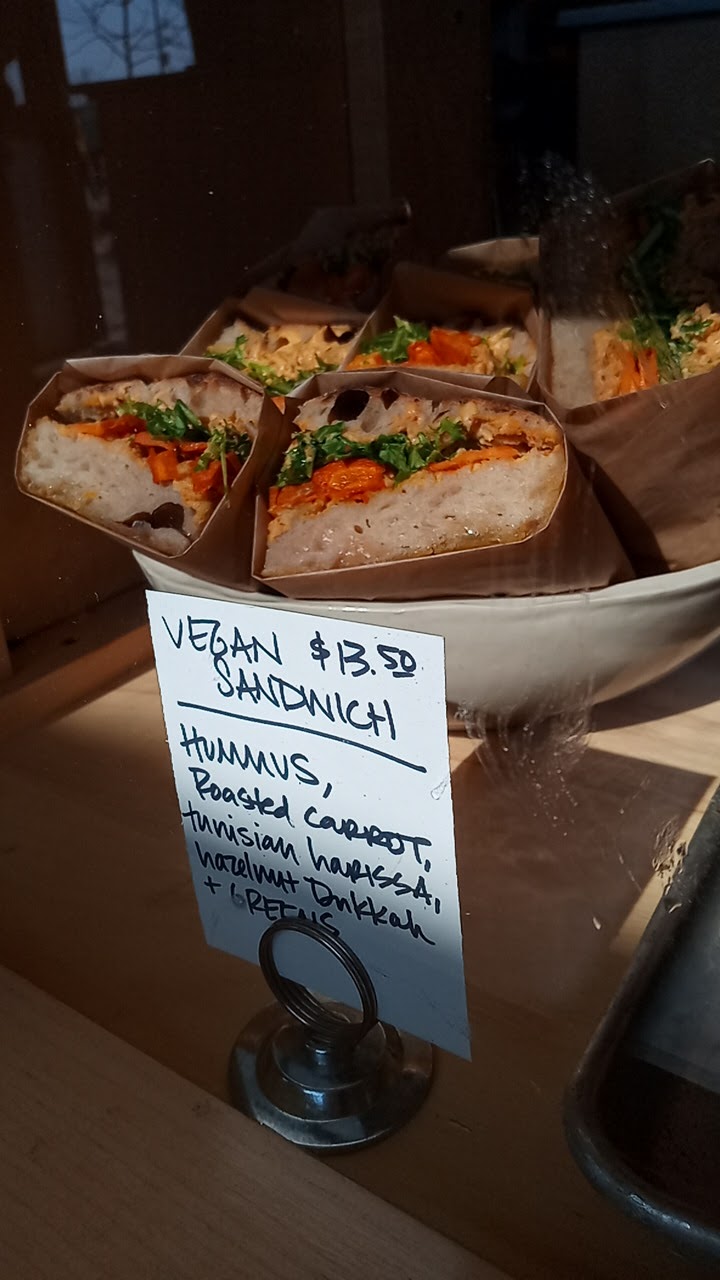 VEGAN $13.50
SANDWICH
HUMMUS,
Roasted CARROT,
tunisian haRISSA,
hazelnut Dukkah
+ GREENS